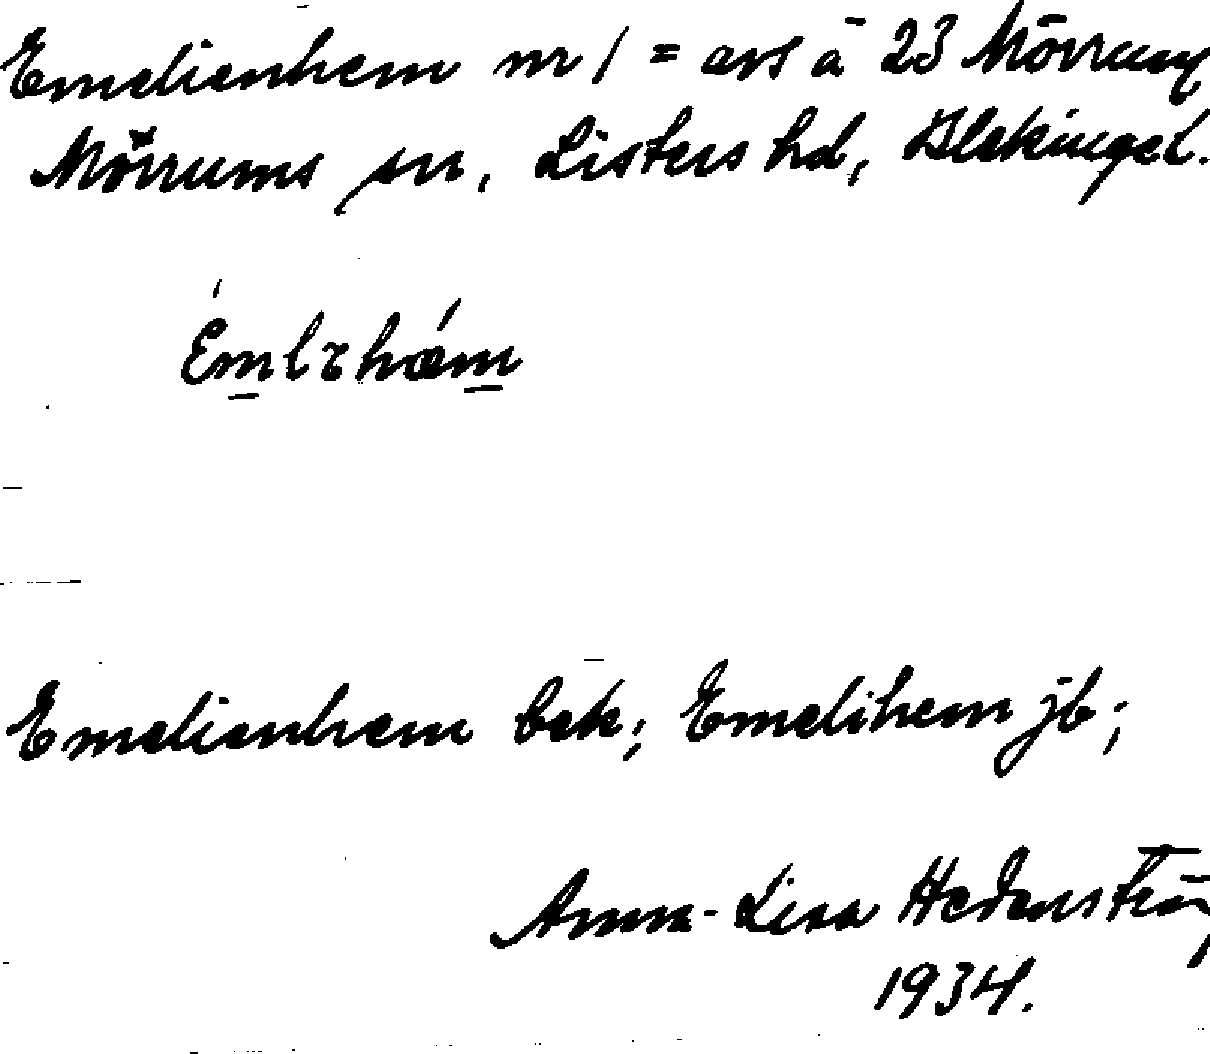 Emelienhem nr 1 = avs å 23 Mörrum
Mörrums sn, Listers hd, Blekinge l.
Emelienhem bek; Emelihem jb;
Anna-Lisa Hedenström
1934.